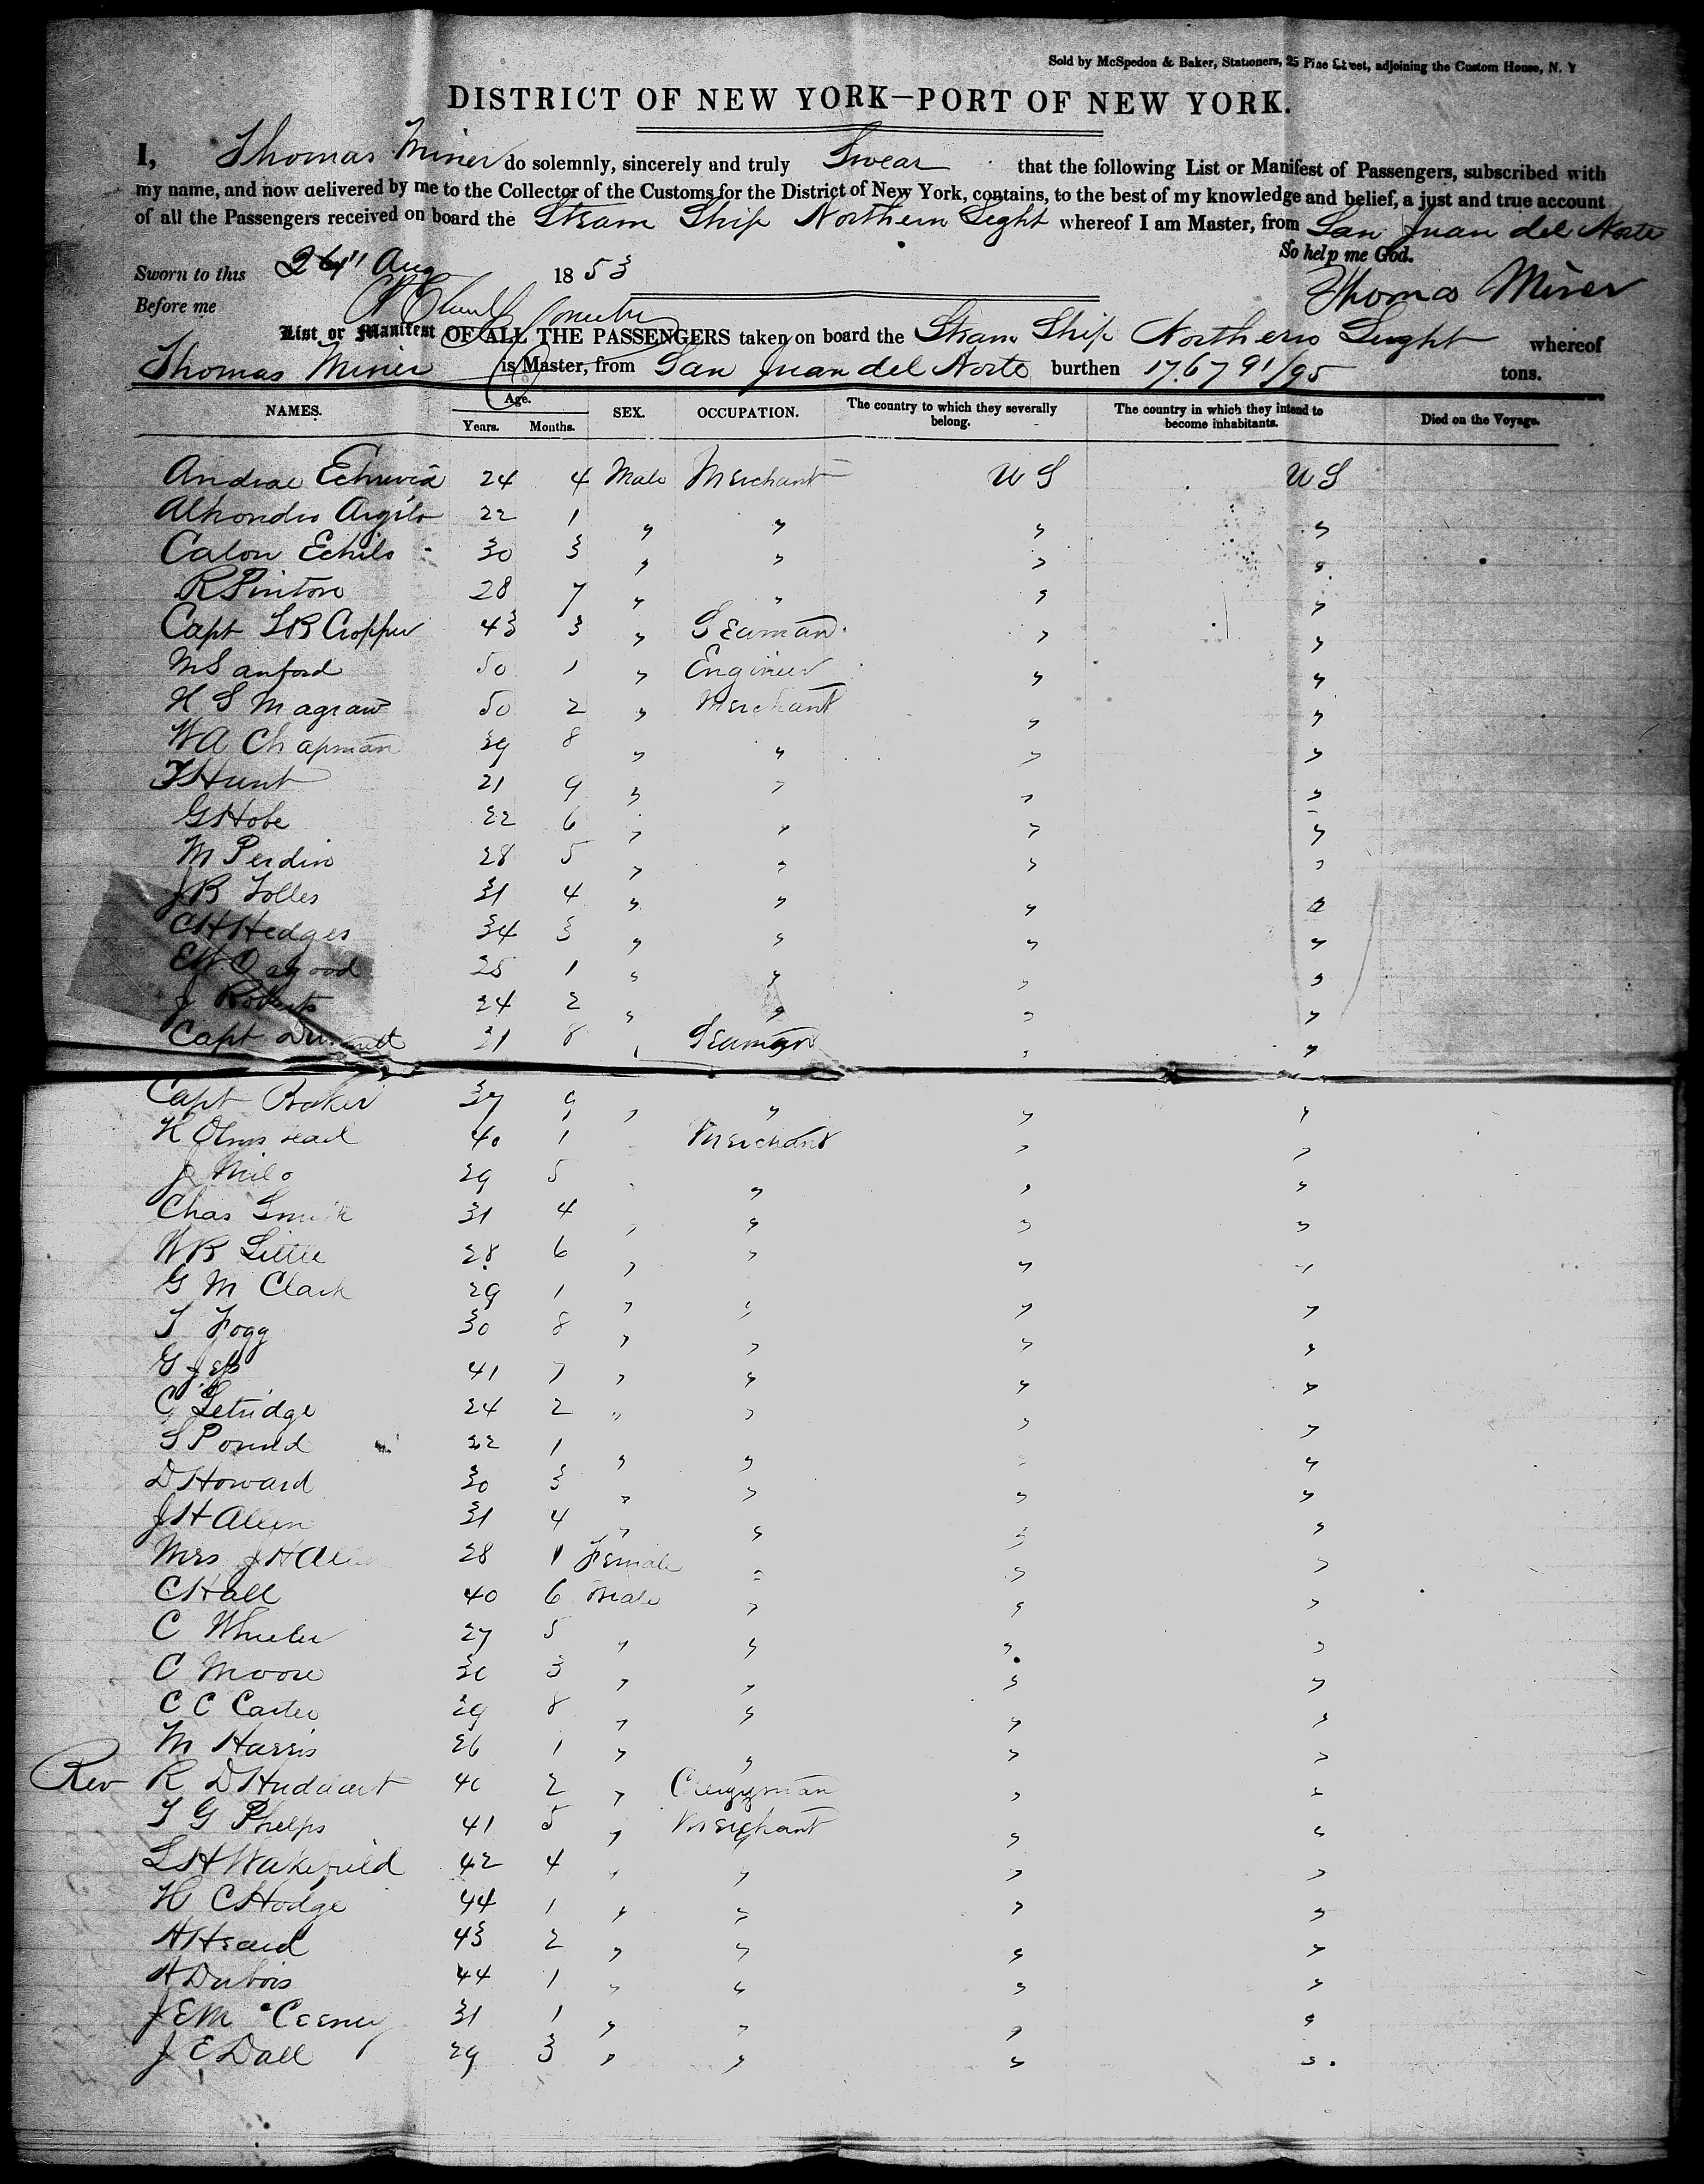 Sold by McSpedon & Baker, Stationers, 25 Pine Street, adjoining the Custom House, N. Y
DISTRICT OF NEW YORK—PORT OF NEW YORK.
I, Thomas Miner do solemnly, sincerely and truly Swear that the following List or Manifest of Passengers, subscribed with
my name, and now delivered by me to the Collector of the Customs for the District of New York, contains, to the best of my knowledge and belief, a just and true account
of all the Passengers received on board the Steam Ship Northern Light whereof I am Master, from San Juan del Norte
So help me God.
Sworn to this Aug 1853
Thomas Miner
Before me
List or Manifest OF ALL THE PASSENGERS taken on board the Steam Ship Northern Light whereof
Thomas Miner is Master, from San Juan del Norte burthen 1767 91/95 tons.
NAMES. Age. Years. Months. SEX. OCCUPATION. The country to which they severally belong. The country in which they intend to become inhabitants. Died on the Voyage.
24 4 Male Merchant U S U S
22 1 " " " "
30 3 " " " "
R Pinton 28 7 " " " "
Capt Cropper 43 3 " Seaman " "
M Sanford 50 1 " Engineer " "
H S Magraw 50 2 " Merchant " "
W A Chapman 39 8 " " " "
Hunt 21 9 " " " "
G Hobe 22 6 " " " "
M Perdin 28 5 " " " "
J B Tolles 31 4 " " " "
C H Hedges 34 3 " " " "
E W Osgood 25 1 " " " "
J Roberts 24 2 " " " "
Capt 31 8 " Seaman " "
Capt Baker 37 9 " " " "
H Olmstead 40 1 Merchant " "
J Milo 29 5 " " " "
Chas Smith 31 4 " " " "
W B Little 28 6 " " " "
G M Clark 29 1 " " " "
T Fogg 30 8 " " " "
G 41 7 " " " "
C Letridge 24 2 " " " "
S Pound 22 1 " " " "
D Howard 30 3 " " " "
J H Allen 31 4 " " " "
Mrs J H Allen 28 1 Female " " "
C Hall 40 6 Male " " "
C Wheeler 27 5 " " " "
C Moore 30 3 " " " "
C C Carter 29 8 " " " "
M Harris 26 1 " " " "
Rev R D Huddart 40 2 " Clergyman " "
T G Phelps 41 5 " Merchant " "
L H Wakefield 42 4 " " " "
H C Hodge 44 1 " " " "
H Heard 43 2 " " " "
H Dubois 44 1 " " " "
J E 31 1 " " " "
J E Dall 29 3 " " " "